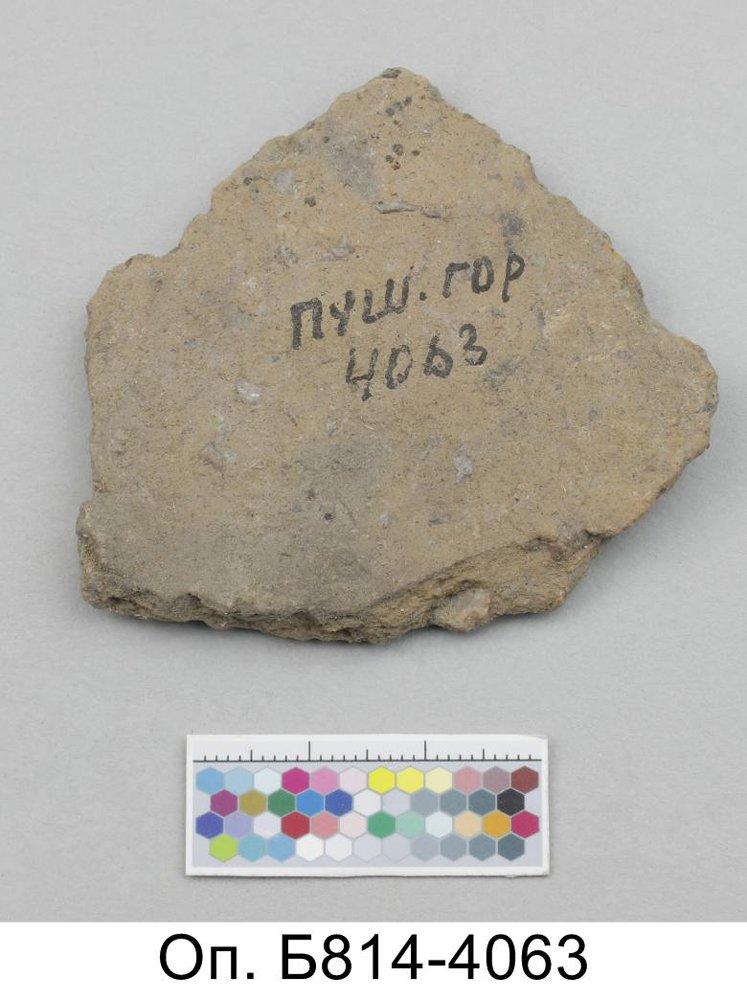 ПУШ.ГОР
4063
Оп. Б814-4063